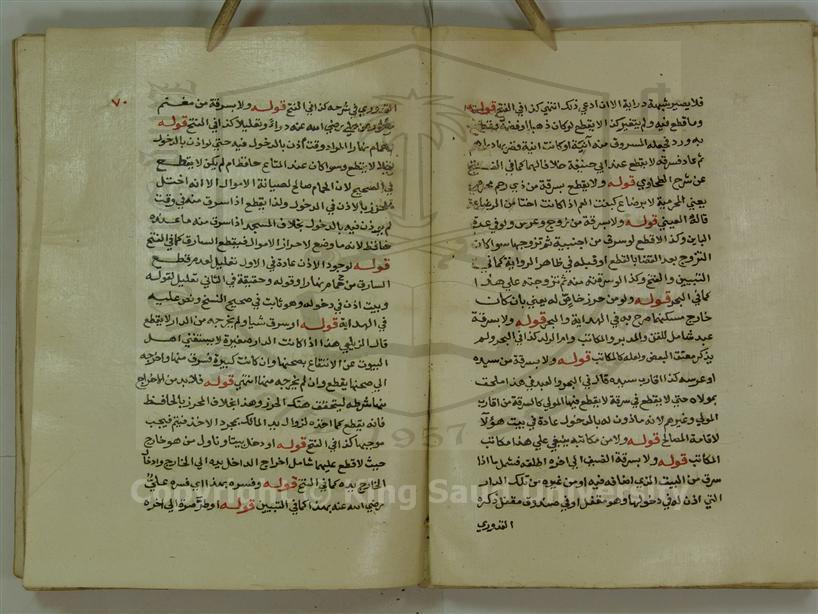 فلا يصير شبهة دارئة الا ان ادعى ذلك انتهى كذا في الفتح قوله
وما قطع فيه ولم يتغير كذا لا يقطع لوكان ذهبا اوفضة وقطع
به ورده فجعله المسروق منه آنية اوكانت آنية وضربها دراهم
ثم عاد فسرقه لا يقطع عند ابي حنيفة خلافا لهما كما في
عن شرح الطحاوي قوله ولا يقطع بسرقة من ذي رحم محرم
يعني المحرمية لا برضاع كبنت العم اذا كانت اختا من الرضاع
قاله العيني قوله ولا بسرقة من زوج وعرس ولو في عدة
الباين وكذا لا قطع لو سرق من اجنبية ثم تزوجها سوا كان
التزوج بعد القضا بالقطع او قبله في ظاهر الرواية كما في
التبيين والفتح وكذا لو سرقته منه ثم تزوجته على هذا
كما في البحر قوله ولو من حرز خاص له يعني بان كان
خارج مسكنهما صرح به في الهداية والبحر قوله ولا بسرقة
عبد شامل للقن والمدبر والمكاتب وام الولد كذا في البحر ولم
يذكر معتق البعض ولعله كالمكاتب قوله ولا بسرقة من سيده
او عرسه كذا اقارب سيده قال في البحر والعبد في هذا ملحق
بمولاه حتى لا يقطع في سرقة لا يقطع فيها المولى كالسرقة من اقارب
المولى وغيرهم لانه ماذون له بالدخول عادة في بيت هؤلآ
لاقامة المصالح قوله ولا من مكاتبه ينبغي على هذا مكاتب
المكاتب قوله ولا بسرقة الضيف الى اخره اطلقه فشمل ما اذا
سرق من البيت الذي اضافه فيه او من غيره من تلك الدار
التي اذن له في دخولها وهو مقفل او في صندوق مقفل ذكره
القدوري
٧٠
القدوري في شرحه كذا في الفتح قوله ولا بسرقة من مغنم
عن علي رضي الله عنه درآ وتعليلا كذا في الفتح قوله
وحمام نهارا المراد وقت اذن بالدخول فيه حتى لو اذن بالدخول
ليلا لا يقطع وسوا كان عند المتاع حافظ ام لم يكن لا يقطع
في الصحيح لان الحمام صالح لصيانة الاموال الا انه اختل
الحرز بالاذن في الدخول ولذا يقطع اذا سرق منه في وقت
لم يوذن فيه بالدخول بخلاف المسجد اذا سرق منه ما عنده
حافظ لانه ما وضع لاحراز الاموال فيقطع السارق كما في الفتح
قوله لوجود الاذن عادة في الاول تعليل لعدم قطع
السارق من حمام نهارا وقوله وحقيقة في الثاني تعليل لقوله
وبيت اذن في دخوله وهو ثابت في صحيح النسخ ونص عليه
في الهداية قوله او سرق شيا ولم يخرجه من الدار لا يقطع
قال الزيلعي هذا اذا كانت الدار صغيرة لا يستغني اهل
البيوت عن الانتفاع بصحنها وان كانت كبيرة فسرق منها واخرجه
الى صحنها يقطع وان لم يخرجه منها انتهى قوله فلا بد من الاخراج
منها شرطه ليتحقق هتك الحرز وهذا بخلاف المحرز بالحافظ
فانه يقطع كما اخذه لزوال يد المالك بمجرد الاخذ فيتم فيجب
موجبها كذا في الفتح قوله او دخل بيتا وناول من هو خارج
حيث لا قطع عليهما شامل اخراج الداخل يده الى الخارج وادخال
الخارج يده كما في الفتح قوله وفسره بهذا اي فسره علي
رضي الله عنه بهذا كما في التبيين قوله او طر صرة الى اخره
Copyright © King Saud University
1957